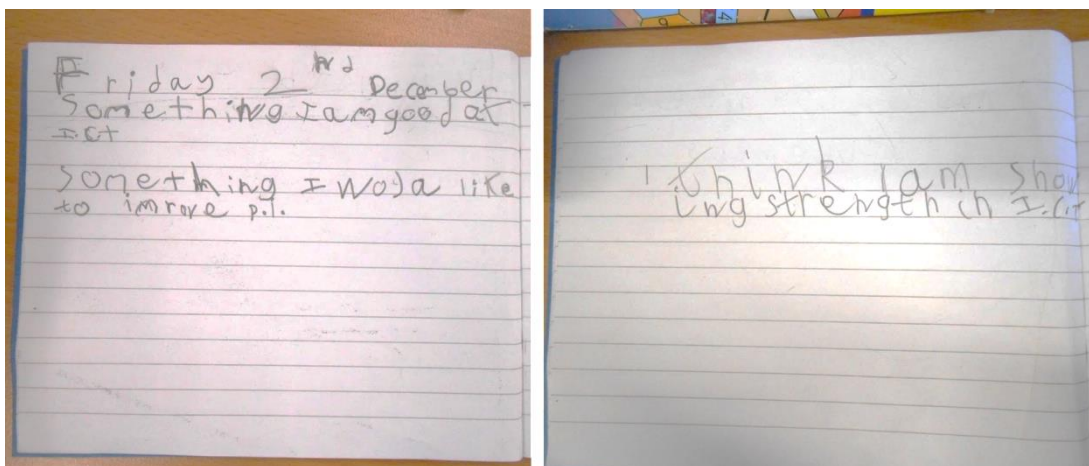 Friday 2nd December
Something I am good at
I.ct
Something I would like
to imrove p.l.
I think I am show
ing strength in I.c.t